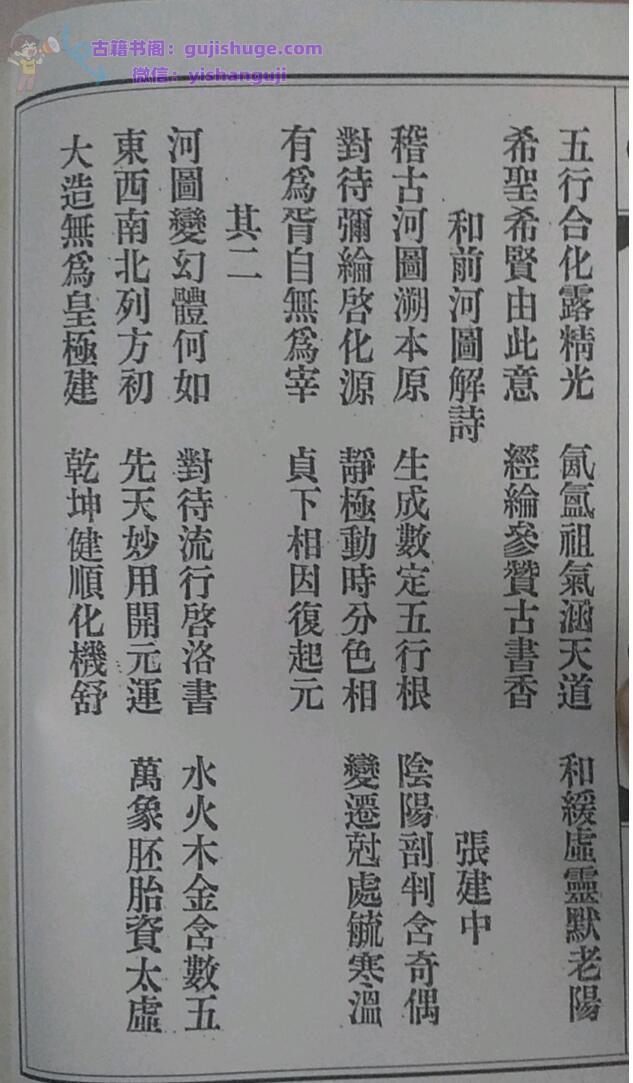 古籍书阁：gujishuge.com
微信：yishanguji
五行合化露精光　氤氳祖氣涵天道　和緩虛靈默老陽
希聖希賢由此意　經綸參贊古書香
和前河圖解詩　張建中
稽古河圖溯本原　生成數定五行根　陰陽剖判含奇偶
對待彌綸啓化源　靜極動時分色相　變遷尅處毓寒溫
有爲胥自無爲宰　貞下相因復起元
其二
河圖變幻體何如　對待流行啓洛書　水火木金含數五
東西南北列方初　先天妙用開元運　萬象胚胎資太虛
大造無爲皇極建　乾坤健順化機舒